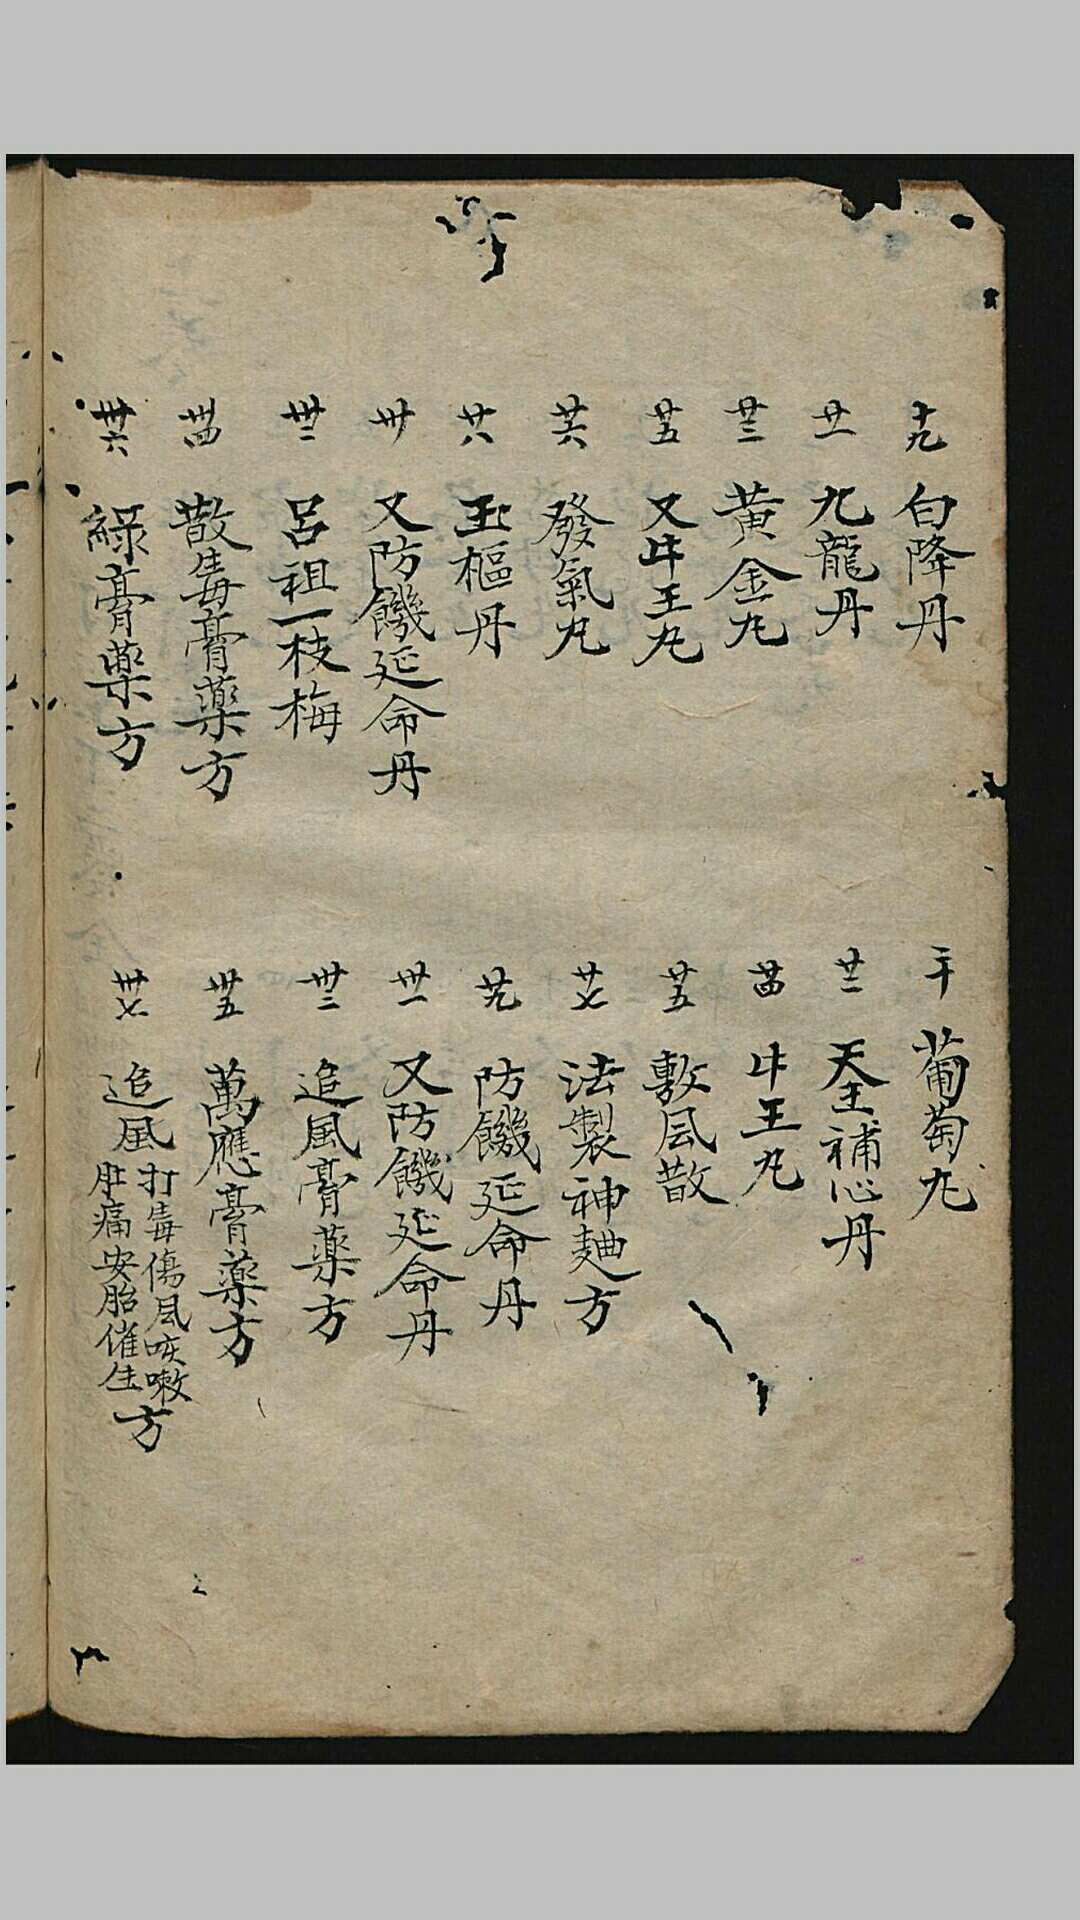 十九 白降丹
二十 葡萄丸
廿一 九龍丹
廿二 天王補心丹
廿三 黃金丸
廿四 牛王丸
廿五 又牛王丸
廿五 敷风散
廿六 發氣丸
廿七 法製神麯方
廿八 玉樞丹
廿九 防饑延命丹
卅 又防饑延命丹
卅一 又防饑延命丹
卅二 呂祖一枝梅
卅三 追風膏藥方
卅四 散毒膏藥方
卅五 萬應膏藥方
卅六 綠膏藥方
卅七 追風打毒傷风咳嗽肚痛安胎催生方